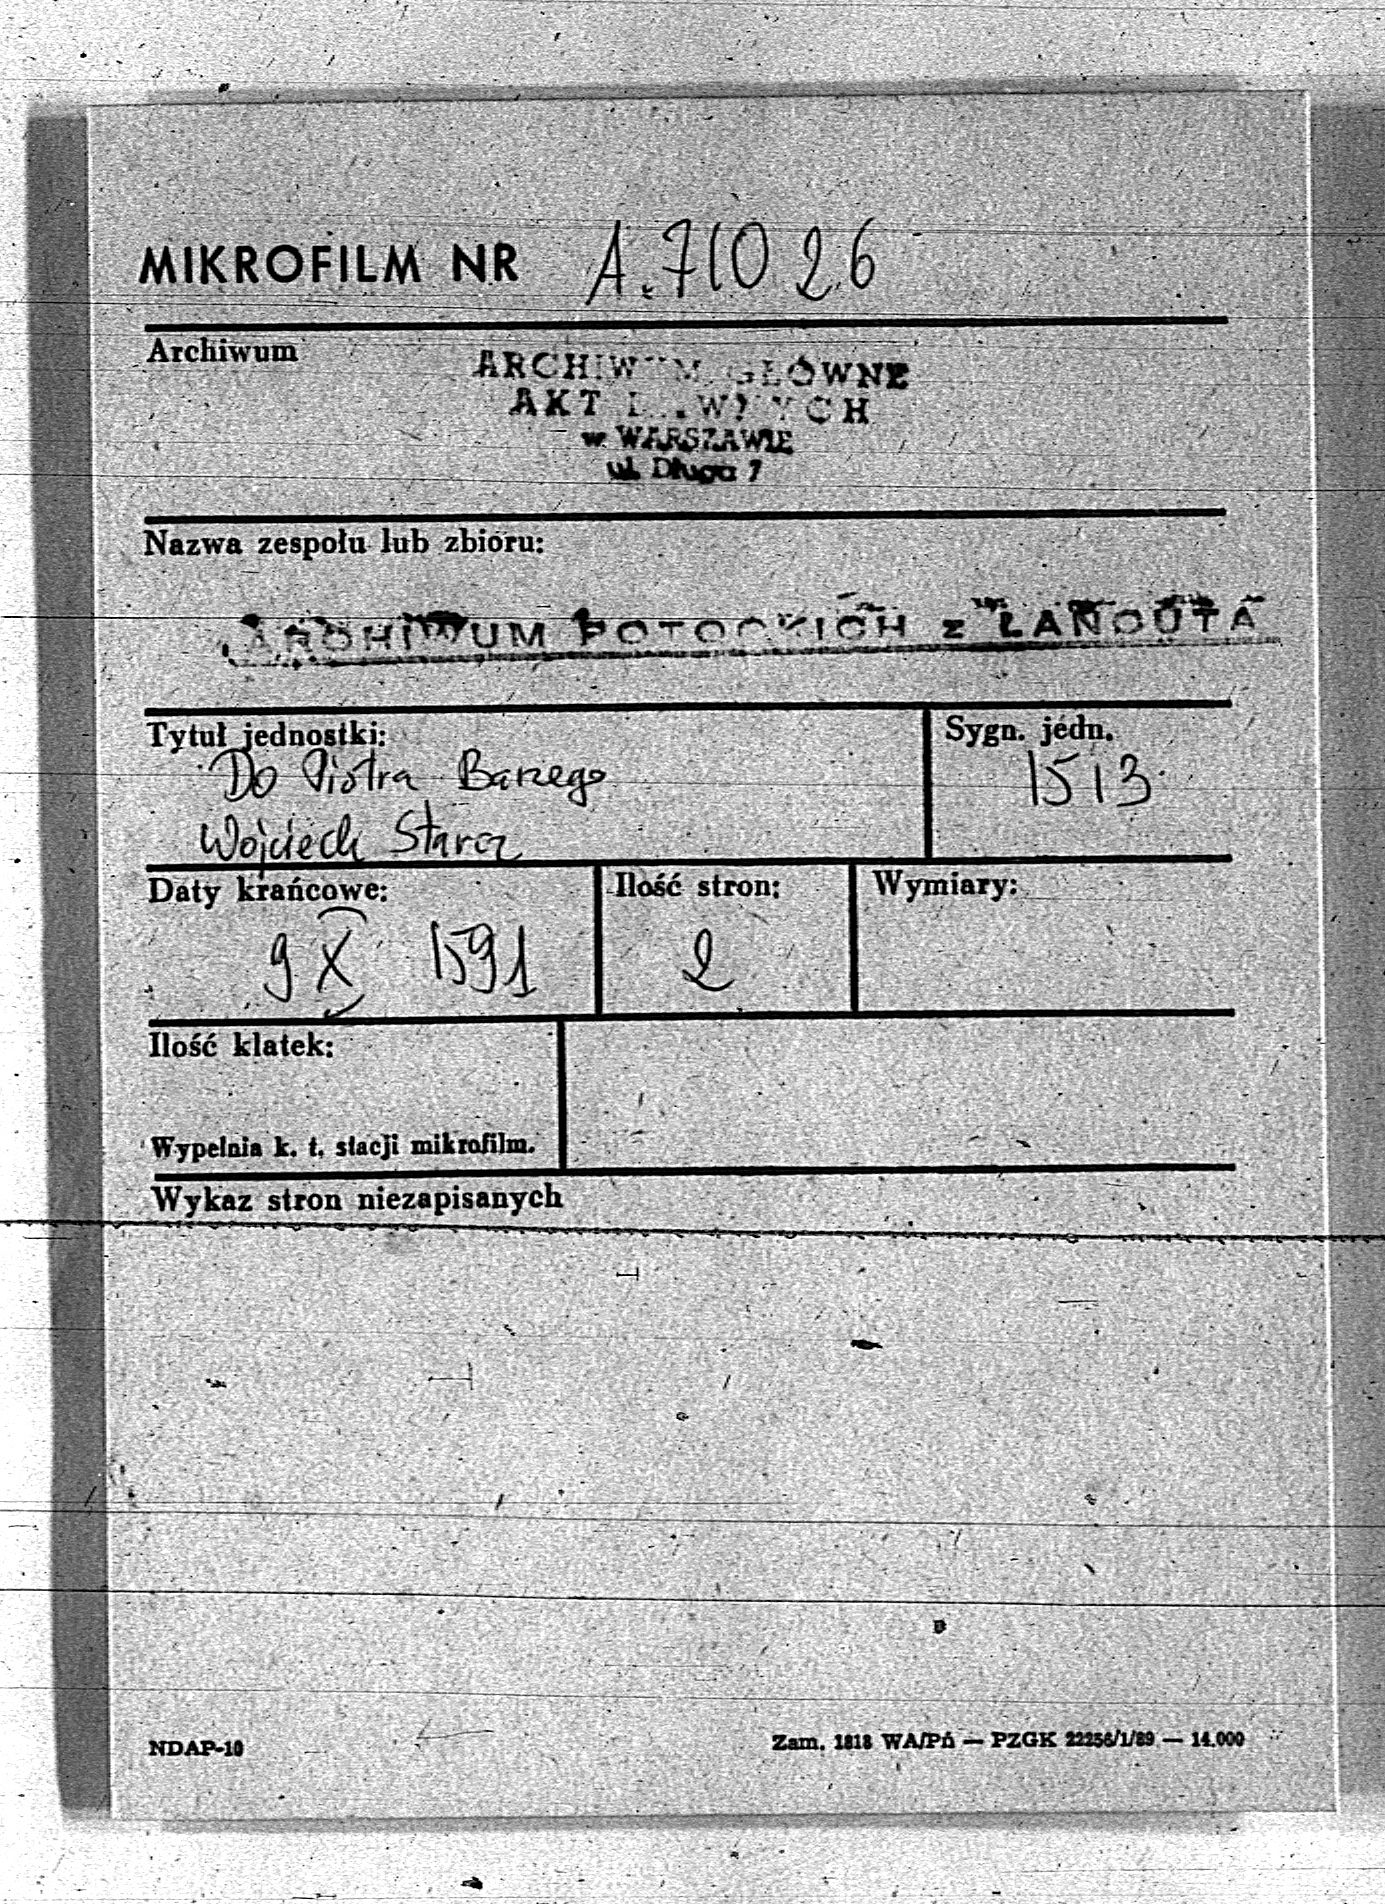 MIKROFILM NR A.71026
Archiwum
ARCHIWUM GŁÓWNE
AKT DAWNYCH
w WARSZAWIE
ul. Długa 7
Nazwa zespołu lub zbioru:
ARCHIWUM POTOCKICH z ŁAŃCUTA
Tytuł jednostki:
Do Piotra Barzego
Wojciech Starz
Sygn. jedn.
1513
Daty krańcowe:
9 X 1591
Ilość stron:
2
Wymiary:
Ilość klatek:
Wypełnia k. t. stacji mikrofilm.
Wykaz stron niezapisanych
NDAP-10
Zam. 1818 WA/Pń — PZGK 22256/1/89 — 14.000